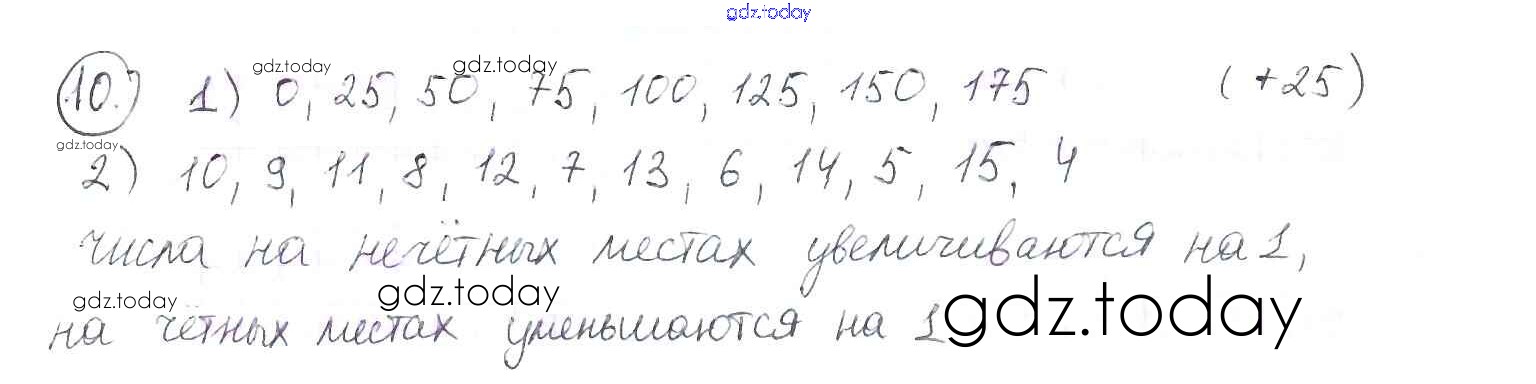 gdz.today
10.) 1) 0, 25, 50, 75, 100, 125, 150, 175 (+25)
gdz.today gdz.today
gdz.today
2) 10, 9, 11, 8, 12, 7, 13, 6, 14, 5, 15, 4
числа на нечётных местах увеличиваются на 1,
gdz.today gdz.today gdz.today
на чётных местах уменьшаются на 1